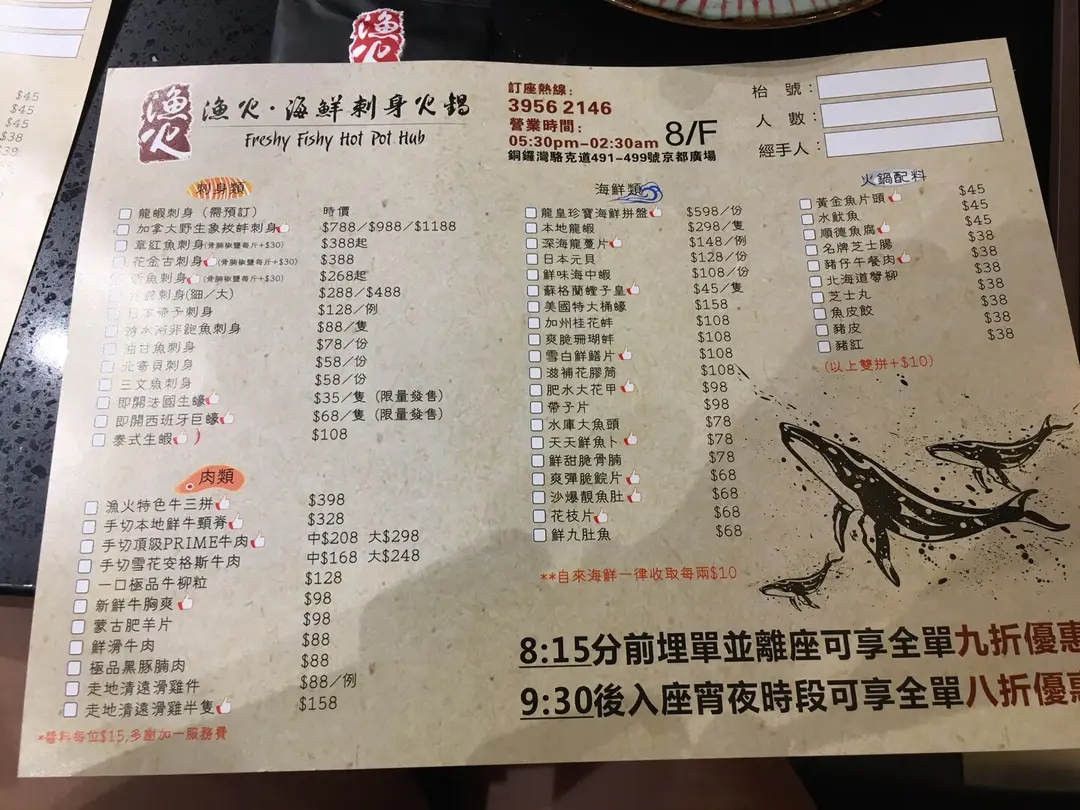 漁火
$45
$45
$45
$38
漁火
漁火·海鮮刺身火鍋
Freshy Fishy Hot Pot Hub
訂座熱線:
3956 2146
營業時間:
05:30pm-02:30am 8/F
銅鑼灣駱克道491-499號京都廣場
枱 號:
人 數:
經手人:
刺身類
龍蝦刺身 (需預訂) 時價
加拿大野生象拔蚌刺身 $788/$988/$1188
章紅魚刺身(骨腩椒鹽每斤+$30) $388起
花金古刺身(骨腩椒鹽每斤+$30) $388
魚刺身(骨腩椒鹽每斤+$30) $268起
刺身(細/大) $288/$488
日本帶子刺身 $128/例
南非鮑魚刺身 $88/隻
油甘魚刺身 $78/份
北寄貝刺身 $58/份
三文魚刺身 $58/份
即開法國生蠔 $35/隻 (限量發售)
即開西班牙巨蠔 $68/隻 (限量發售)
泰式生蝦 $108
肉類
漁火特色牛三拼 $398
手切本地鮮牛頸脊 $328
手切頂級PRIME牛肉 中$208 大$298
手切雪花安格斯牛肉 中$168 大$248
一口極品牛柳粒 $128
新鮮牛胸爽 $98
蒙古肥羊片 $98
鮮滑牛肉 $88
極品黑豚腩肉 $88
走地清遠滑雞件 $88/例
走地清遠滑雞半隻 $158
*醬料每位$15,多謝加一服務費
海鮮類
龍皇珍寶海鮮拼盤 $598/份
本地龍蝦 $298/隻
深海龍躉片 $148/例
日本元貝 $128/份
鮮味海中蝦 $108/份
蘇格蘭蟶子皇 $45/隻
美國特大桶蠔 $158
加州桂花蚌 $108
爽脆珊瑚蚌 $108
雪白鮮鱔片 $108
滋補花膠筒 $108
肥水大花甲 $98
帶子片 $98
水庫大魚頭 $78
天天鮮魚卜 $78
鮮甜脆骨腩 $78
爽彈脆鯇片 $68
沙爆靚魚肚 $68
花枝片 $68
鮮九肚魚 $68
**自來海鮮一律收取每兩$10
火鍋配料
黃金魚片頭 $45
水魷魚 $45
順德魚腐 $45
名牌芝士腸 $38
豬仔午餐肉 $38
北海道蟹柳 $38
芝士丸 $38
魚皮餃 $38
豬皮 $38
豬紅 $38
(以上雙拼+$10)
8:15分前埋單並離座可享全單九折優惠
9:30後入座宵夜時段可享全單八折優惠